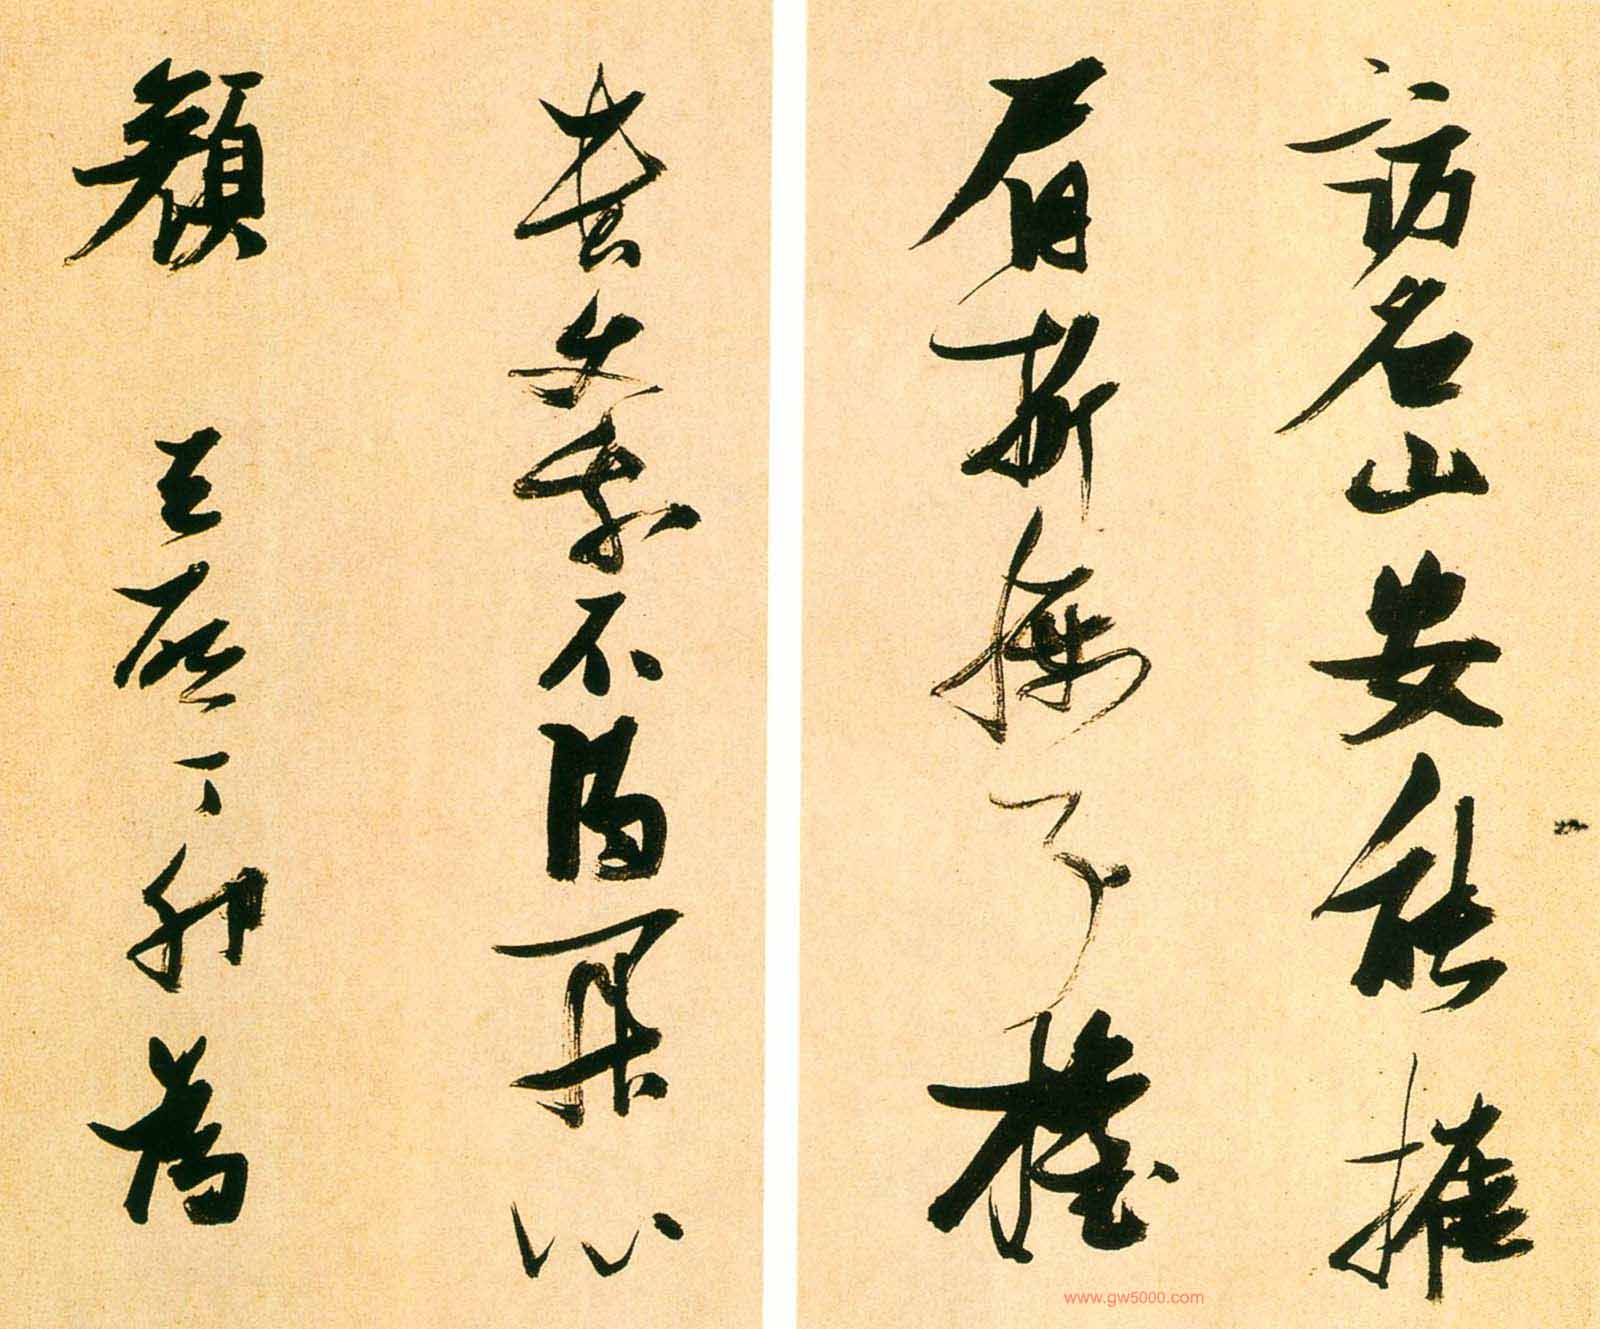 訪名山安能摧
眉折腰事權
貴使我不得開心
顏 天啟丁卯為
www.gw5000.com